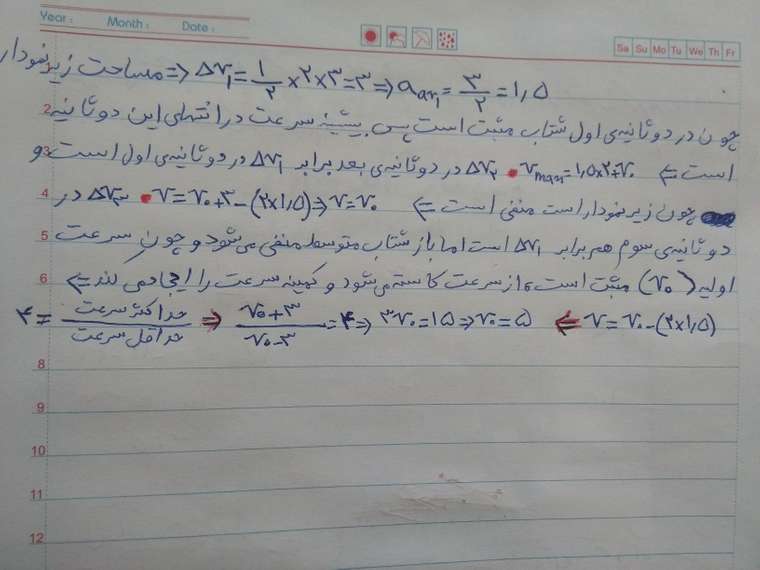 Year: Month: Date:
Sa Su Mo Tu We Th Fr
مساحت زیر نمودار => ΔV₁ = 1/۲ × ۲ × ۳ = ۳ => a_av₁ = ۳/۲ = ۱,۵
2 چون در دو ثانیه‌ی اول شتاب مثبت است پس بیشینه سرعت در انتهای این دو ثانیه
3 است <= Vmax = ۱,۵×۲+V₀ • ΔV₂ در دو ثانیه‌ی بعد برابر ΔV₁ در دو ثانیه‌ی اول است و
4 چون زیر نمودار است منفی است <= V = V₀ + ۳ - (۲×۱,۵) => V = V₀ • ΔV₃ در
5 دو ثانیه‌ی سوم هم برابر ΔV₁ است اما باز شتاب متوسط منفی می‌شود و چون سرعت
6 اولیه (V₀) مثبت است، از سرعت کاسته می‌شود و کمینه سرعت را ایجاد می کند <=
V = V₀ - (۲×۱,۵) => حداکثر سرعت / حداقل سرعت = ۴ => V₀+۳ / V₀-۳ = ۴ => ۳V₀ = ۱۵ => V₀ = ۵
8
9
10
11
12